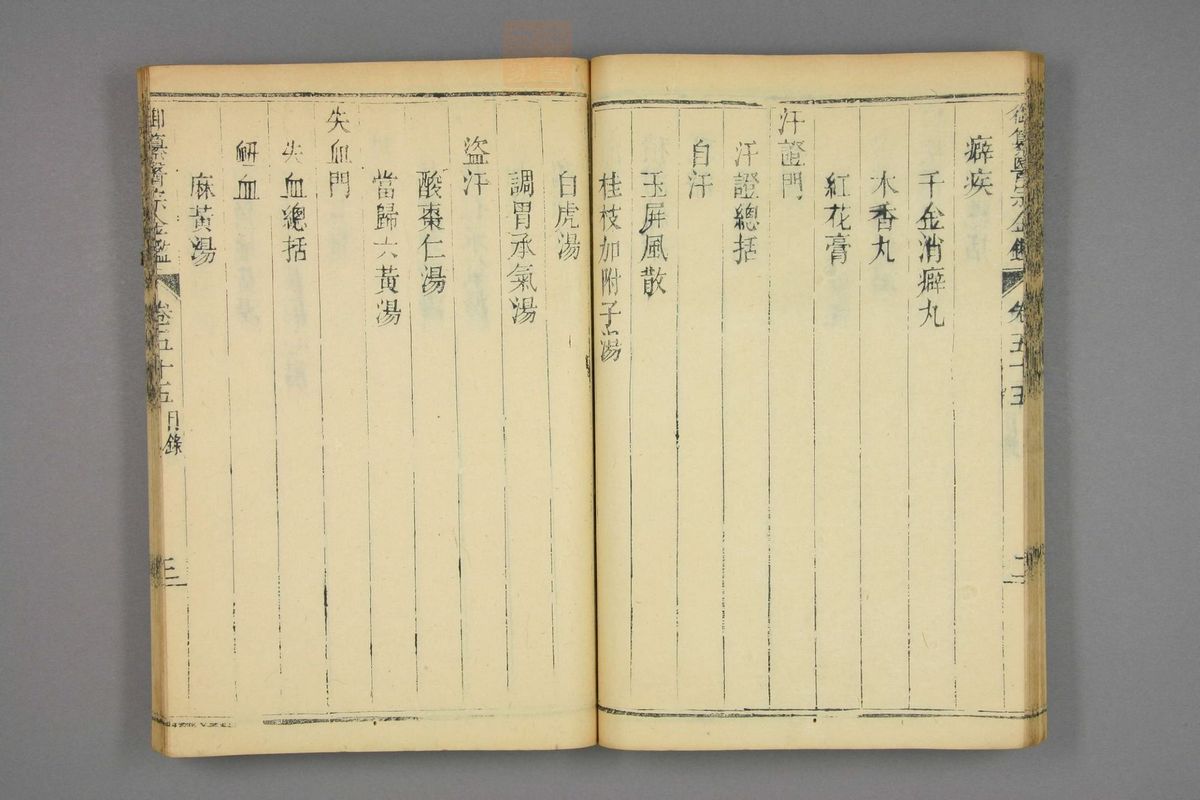 御纂醫宗金鑑
卷五十五
二
癖疾
千金消癖丸
木香丸
紅花膏
汗證門
汗證總括
自汗
玉屏風散
桂枝加附子湯
白虎湯
調胃承氣湯
盜汗
酸棗仁湯
當歸六黃湯
失血門
失血總括
衄血
麻黃湯
御纂醫宗金鑑
卷五十五
目錄
三